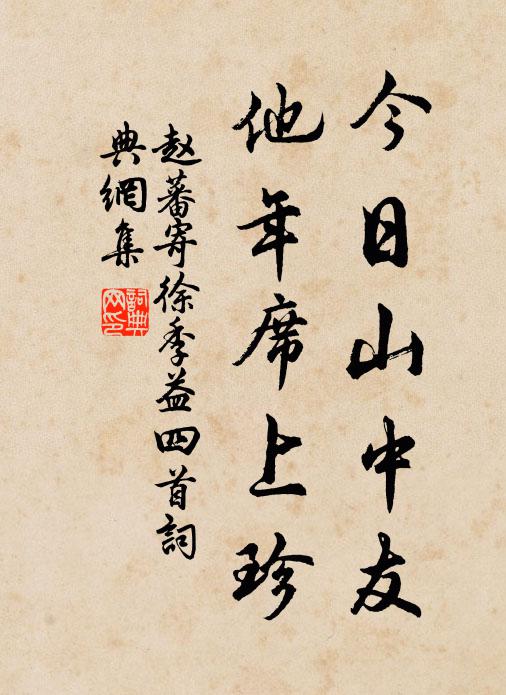 今日山中友
他年席上珍
赵蕃寄徐季益四首詞
典網集
詞典网印